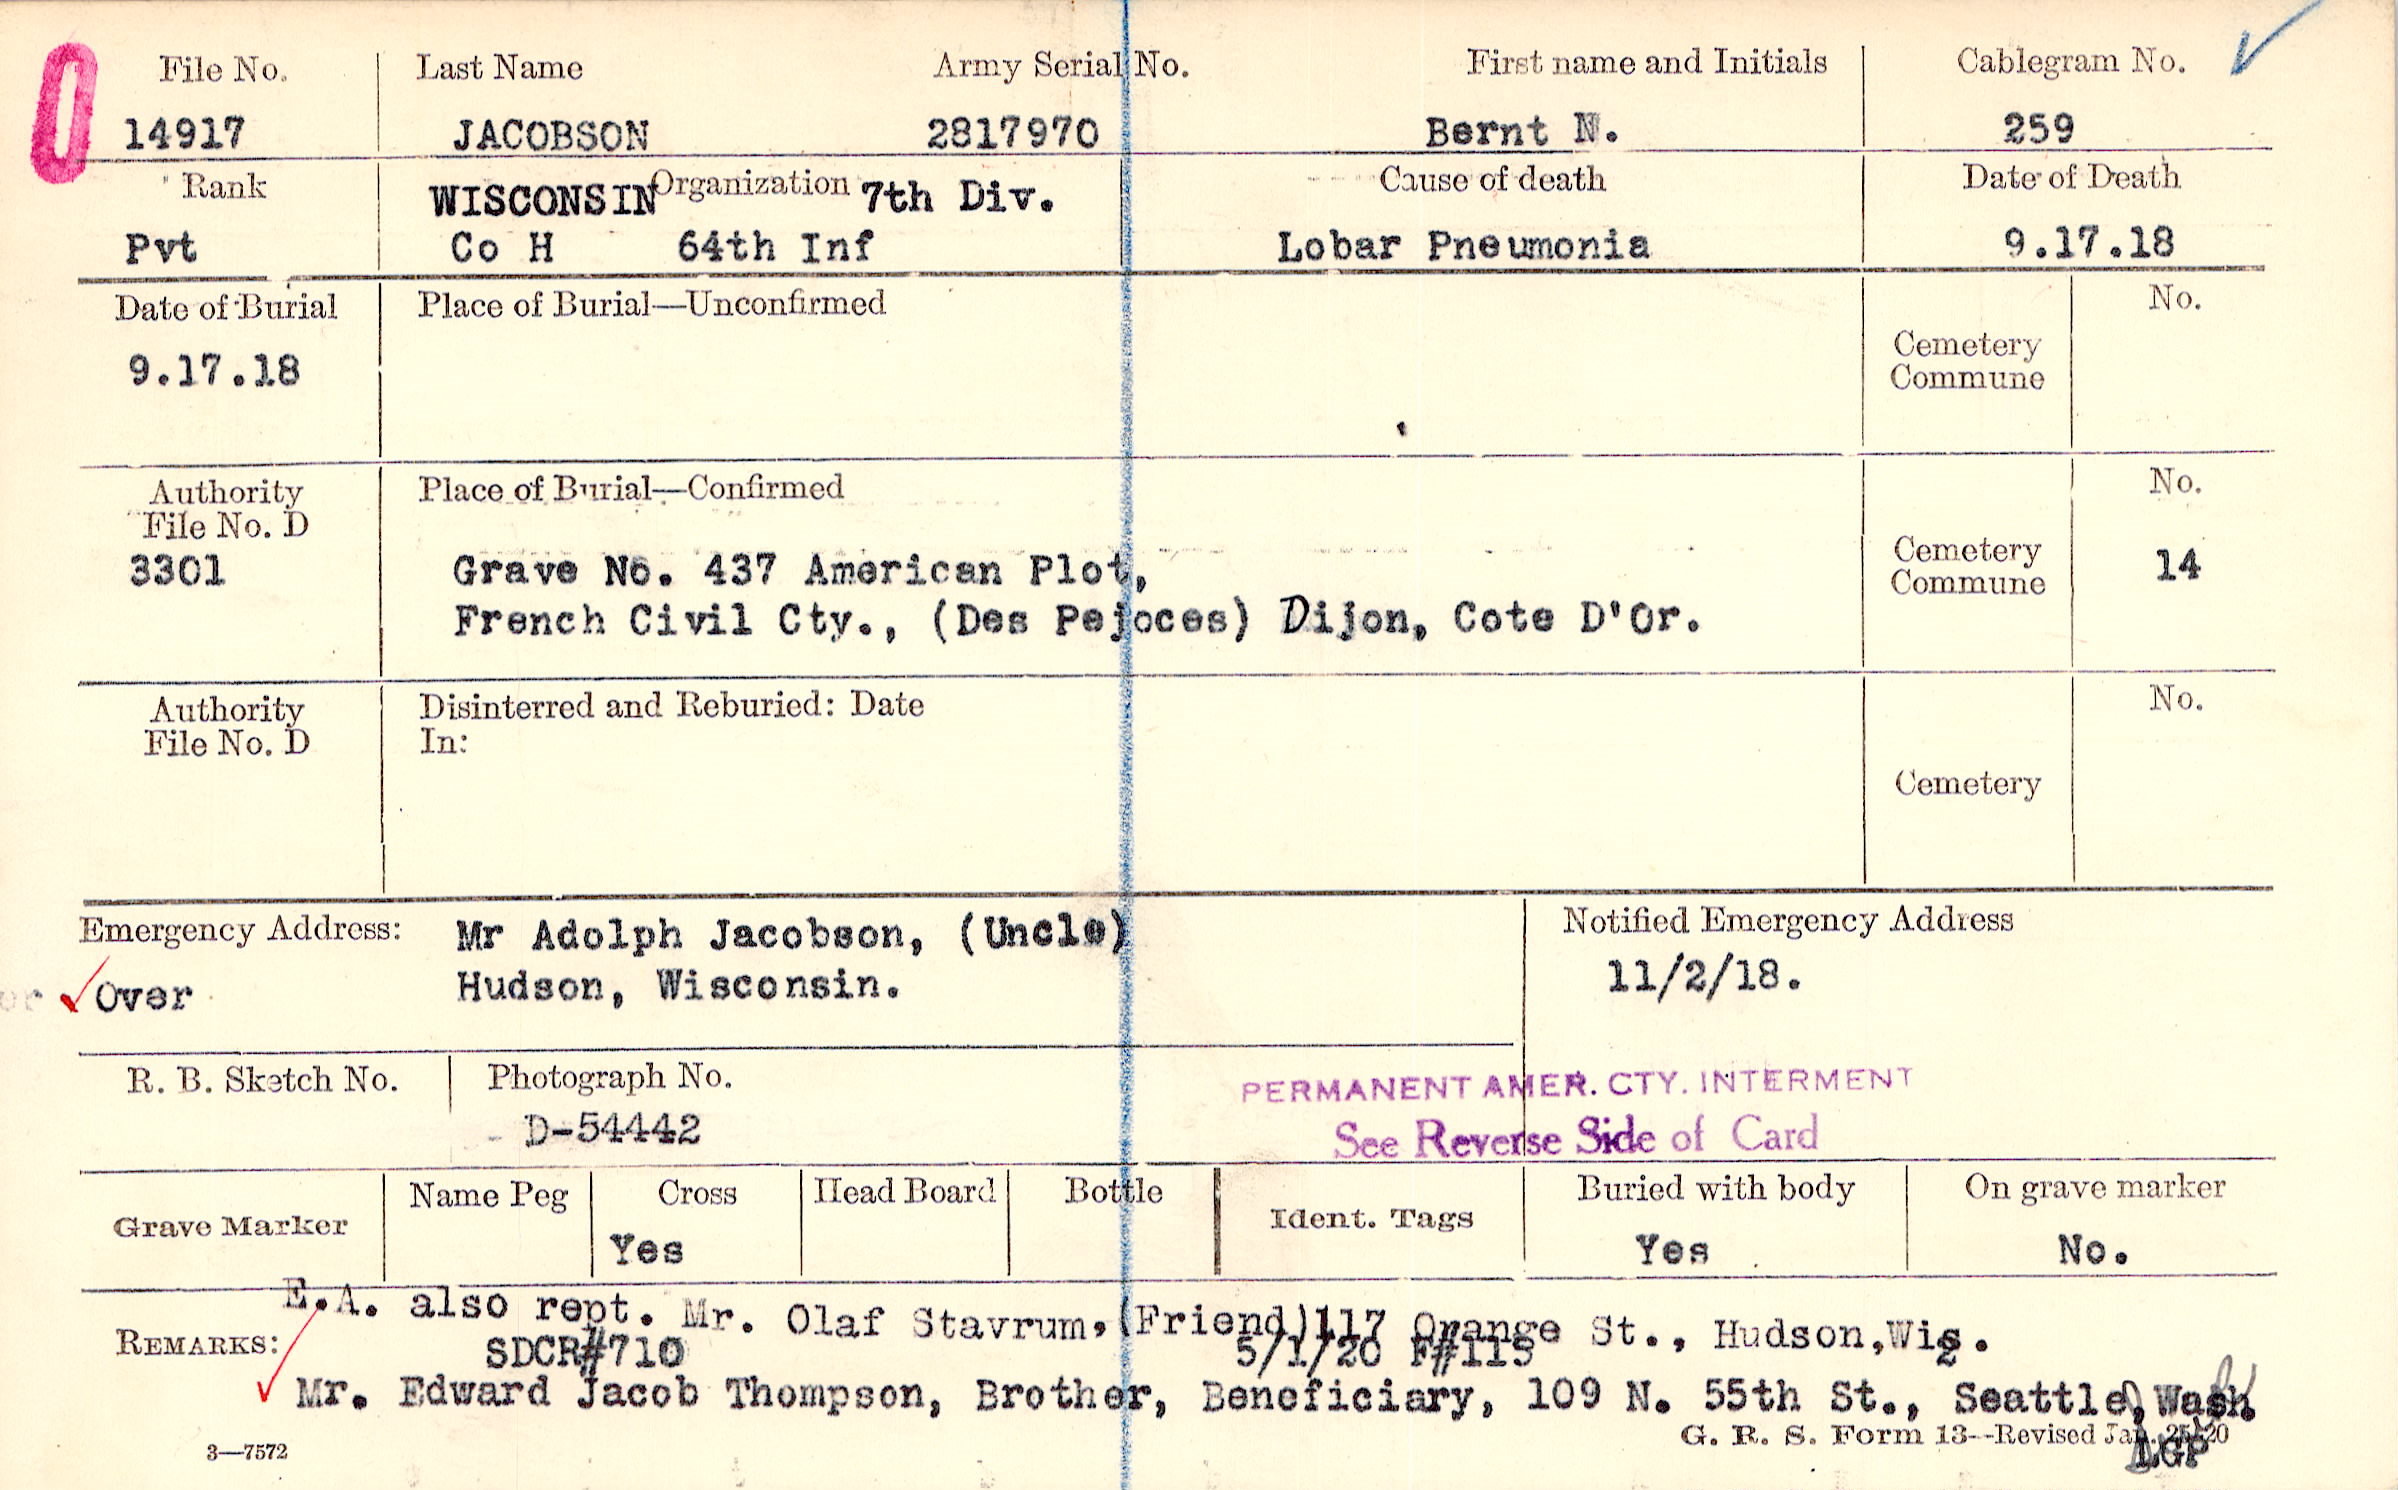 File No. Last Name Army Serial No. First name and Initials Cablegram No.
14917 JACOBSON 2817970 Bernt N. 259
Rank WISCONSIN Organization 7th Div. Cause of death Date of Death
Pvt Co H 64th Inf Lobar Pneumonia 9.17.18
Date of Burial Place of Burial—Unconfirmed No.
9.17.18 Cemetery
Commune
Authority Place of Burial—Confirmed No.
File No. D
3301 Grave No. 437 American Plot, Cemetery 14
Commune
French Civil Cty., (Des Pejoces) Dijon, Cote D'Or.
Authority Disinterred and Reburied: Date No.
File No. D In:
Cemetery
Emergency Address: Mr Adolph Jacobson, (Uncle) Notified Emergency Address
Over Hudson, Wisconsin. 11/2/18.
R. B. Sketch No. Photograph No. PERMANENT AMER. CTY. INTERMENT
D-54442 See Reverse Side of Card
Grave Marker Name Peg Cross Head Board Bottle Ident. Tags Buried with body On grave marker
Yes Yes No.
E.A. also rept. Mr. Olaf Stavrum, (Friend) 117 Orange St., Hudson, Wis.
REMARKS: SDCR#710 5/1/20 F#115
Mr. Edward Jacob Thompson, Brother, Beneficiary, 109 N. 55th St., Seattle, Wash.
3—7572 G. R. S. Form 13--Revised Jan. 20
LGP